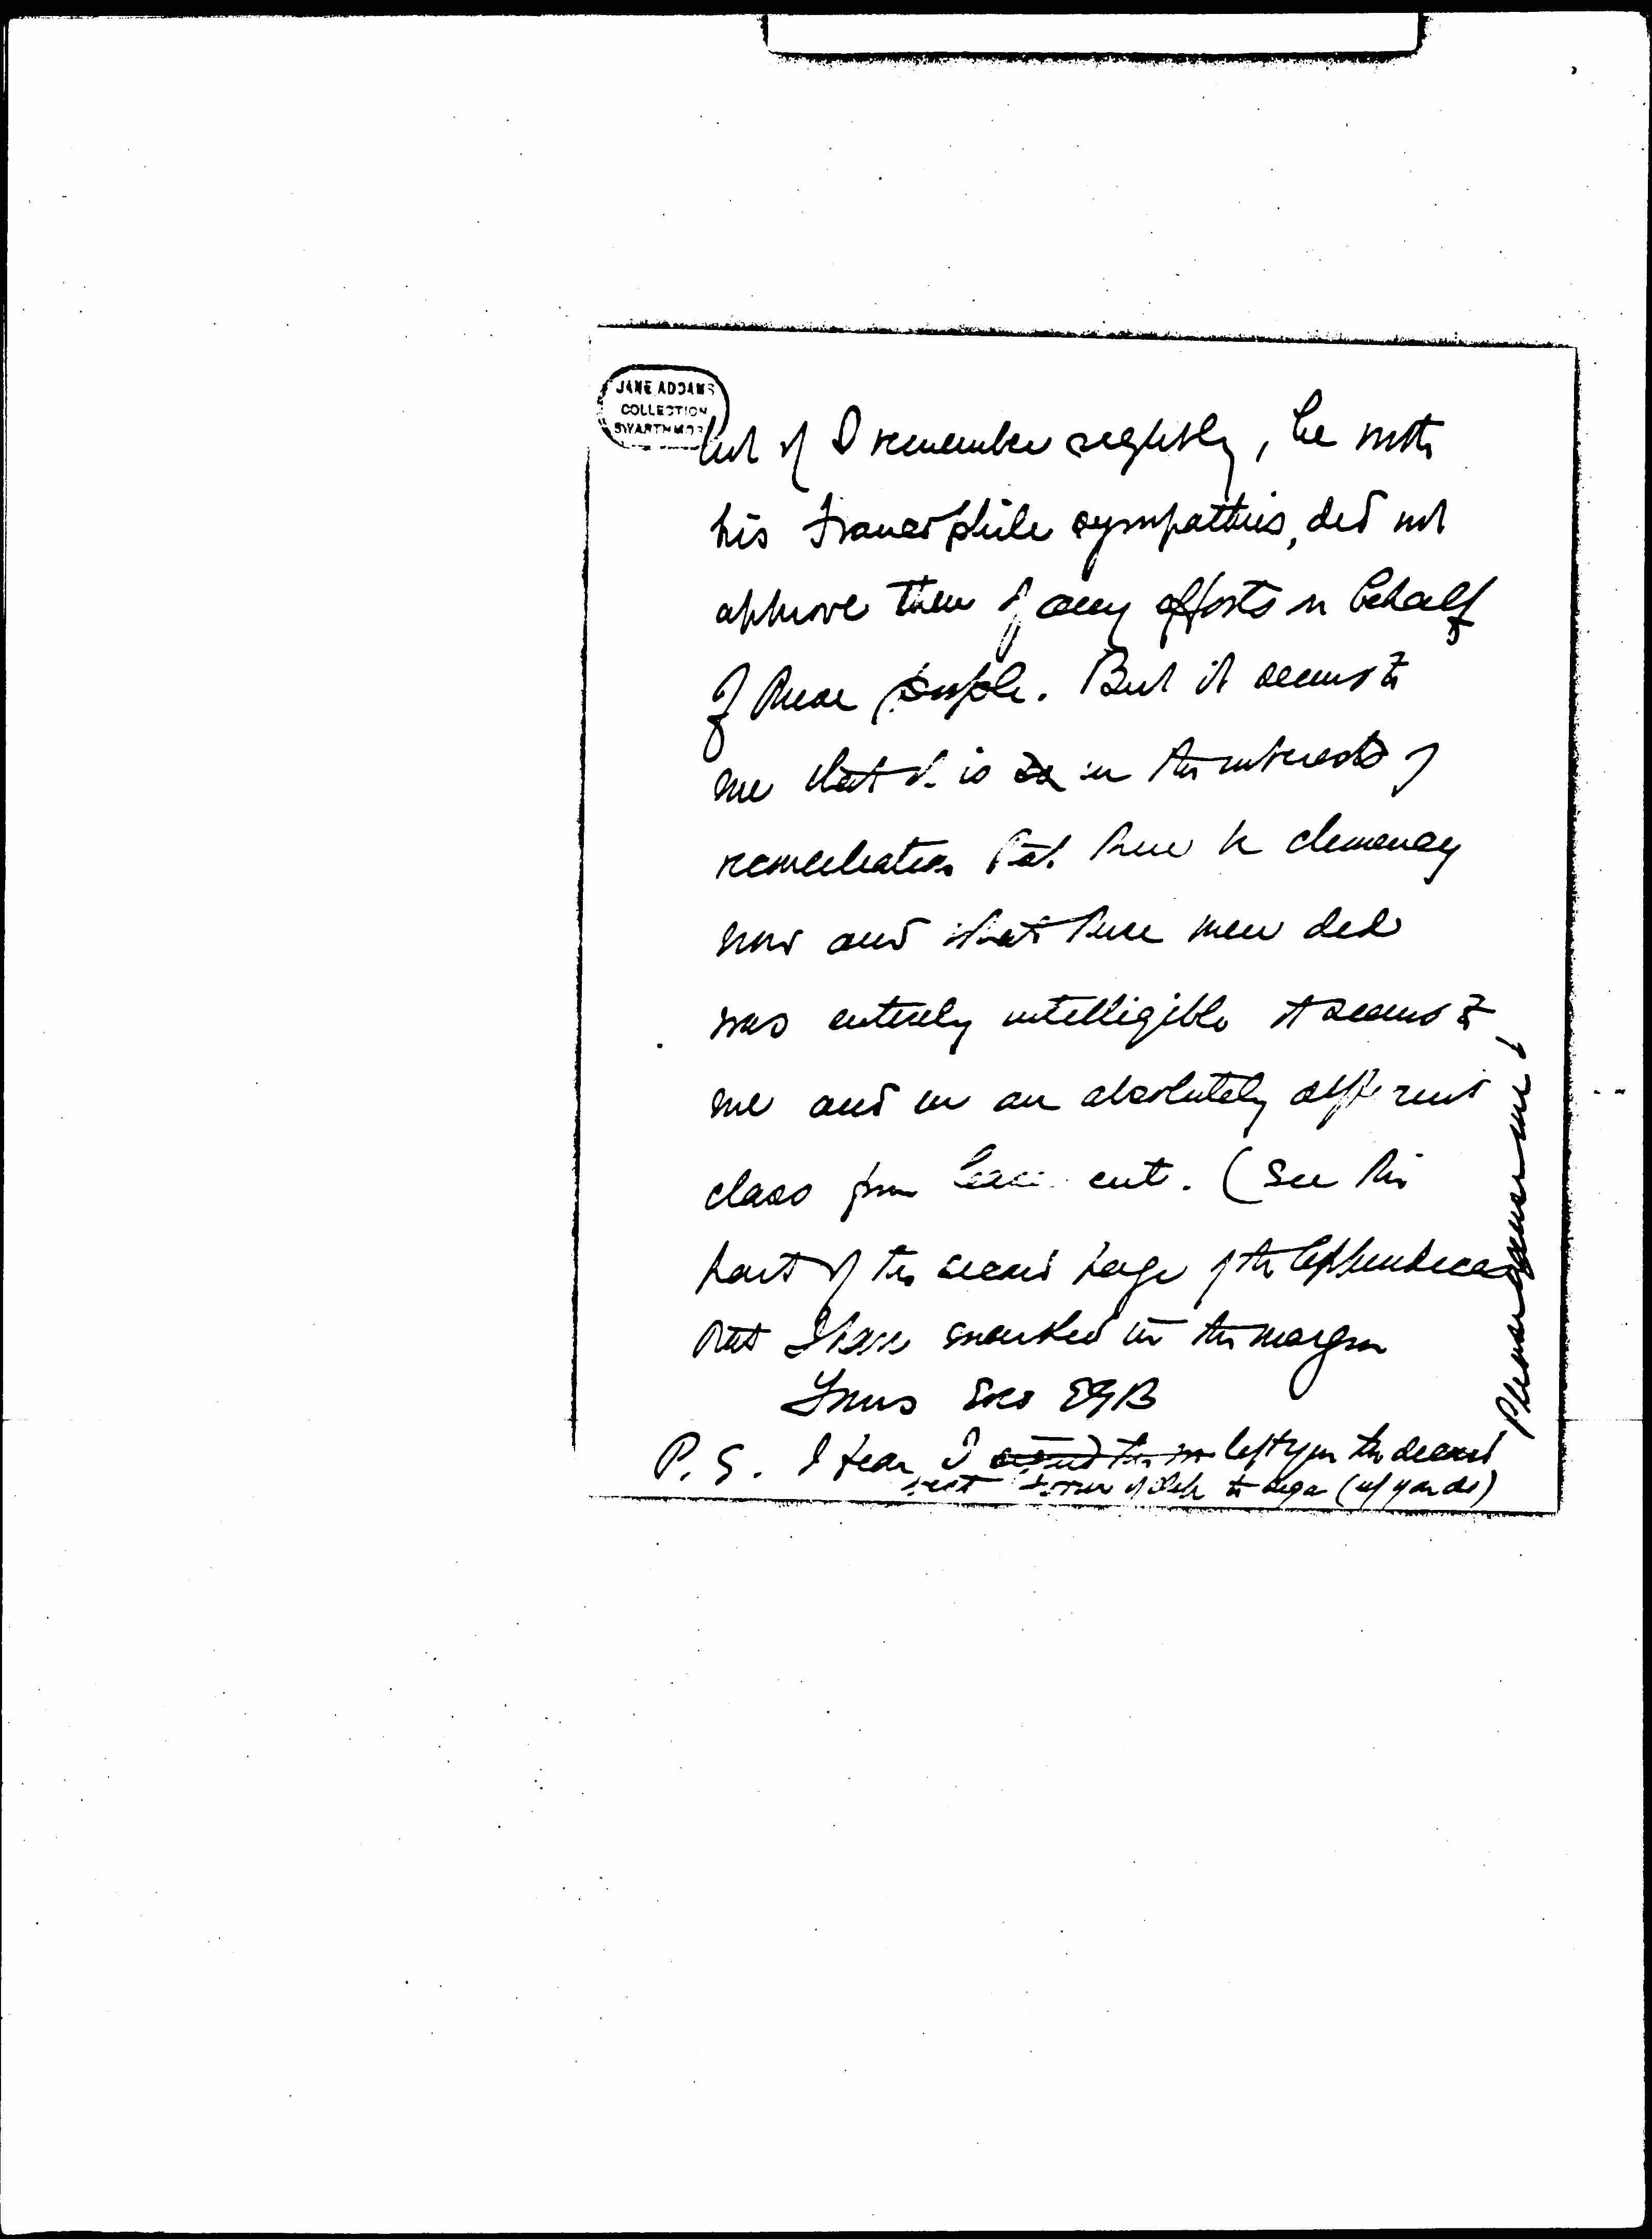 JANE ADDAMS
COLLECTION
SWARTHMORE
but if I remember rightly, he with
his Francophile sympathies, did not
approve then of any efforts in behalf
of these people. But it seems to
me that it is in the interests of
reconciliation that there be clemency
now and what these men did
was entirely intelligible it seems to
me and in an absolutely different
class from ent. (See the
part of the second page of the
that I have marked in the margin
Yours Ever EGB
P. S. I fear I left you the second
to sign (if you do)
Please